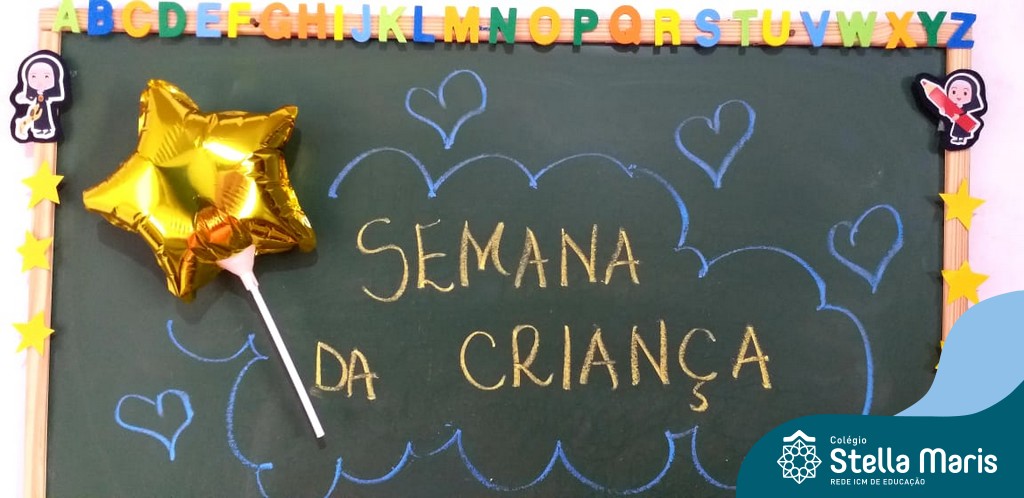 ABCDEFGHIJKLMNOPQRSTUVWXYZ
SEMANA
DA CRIANÇA
Colégio
Stella Maris
REDE ICM DE EDUCAÇÃO